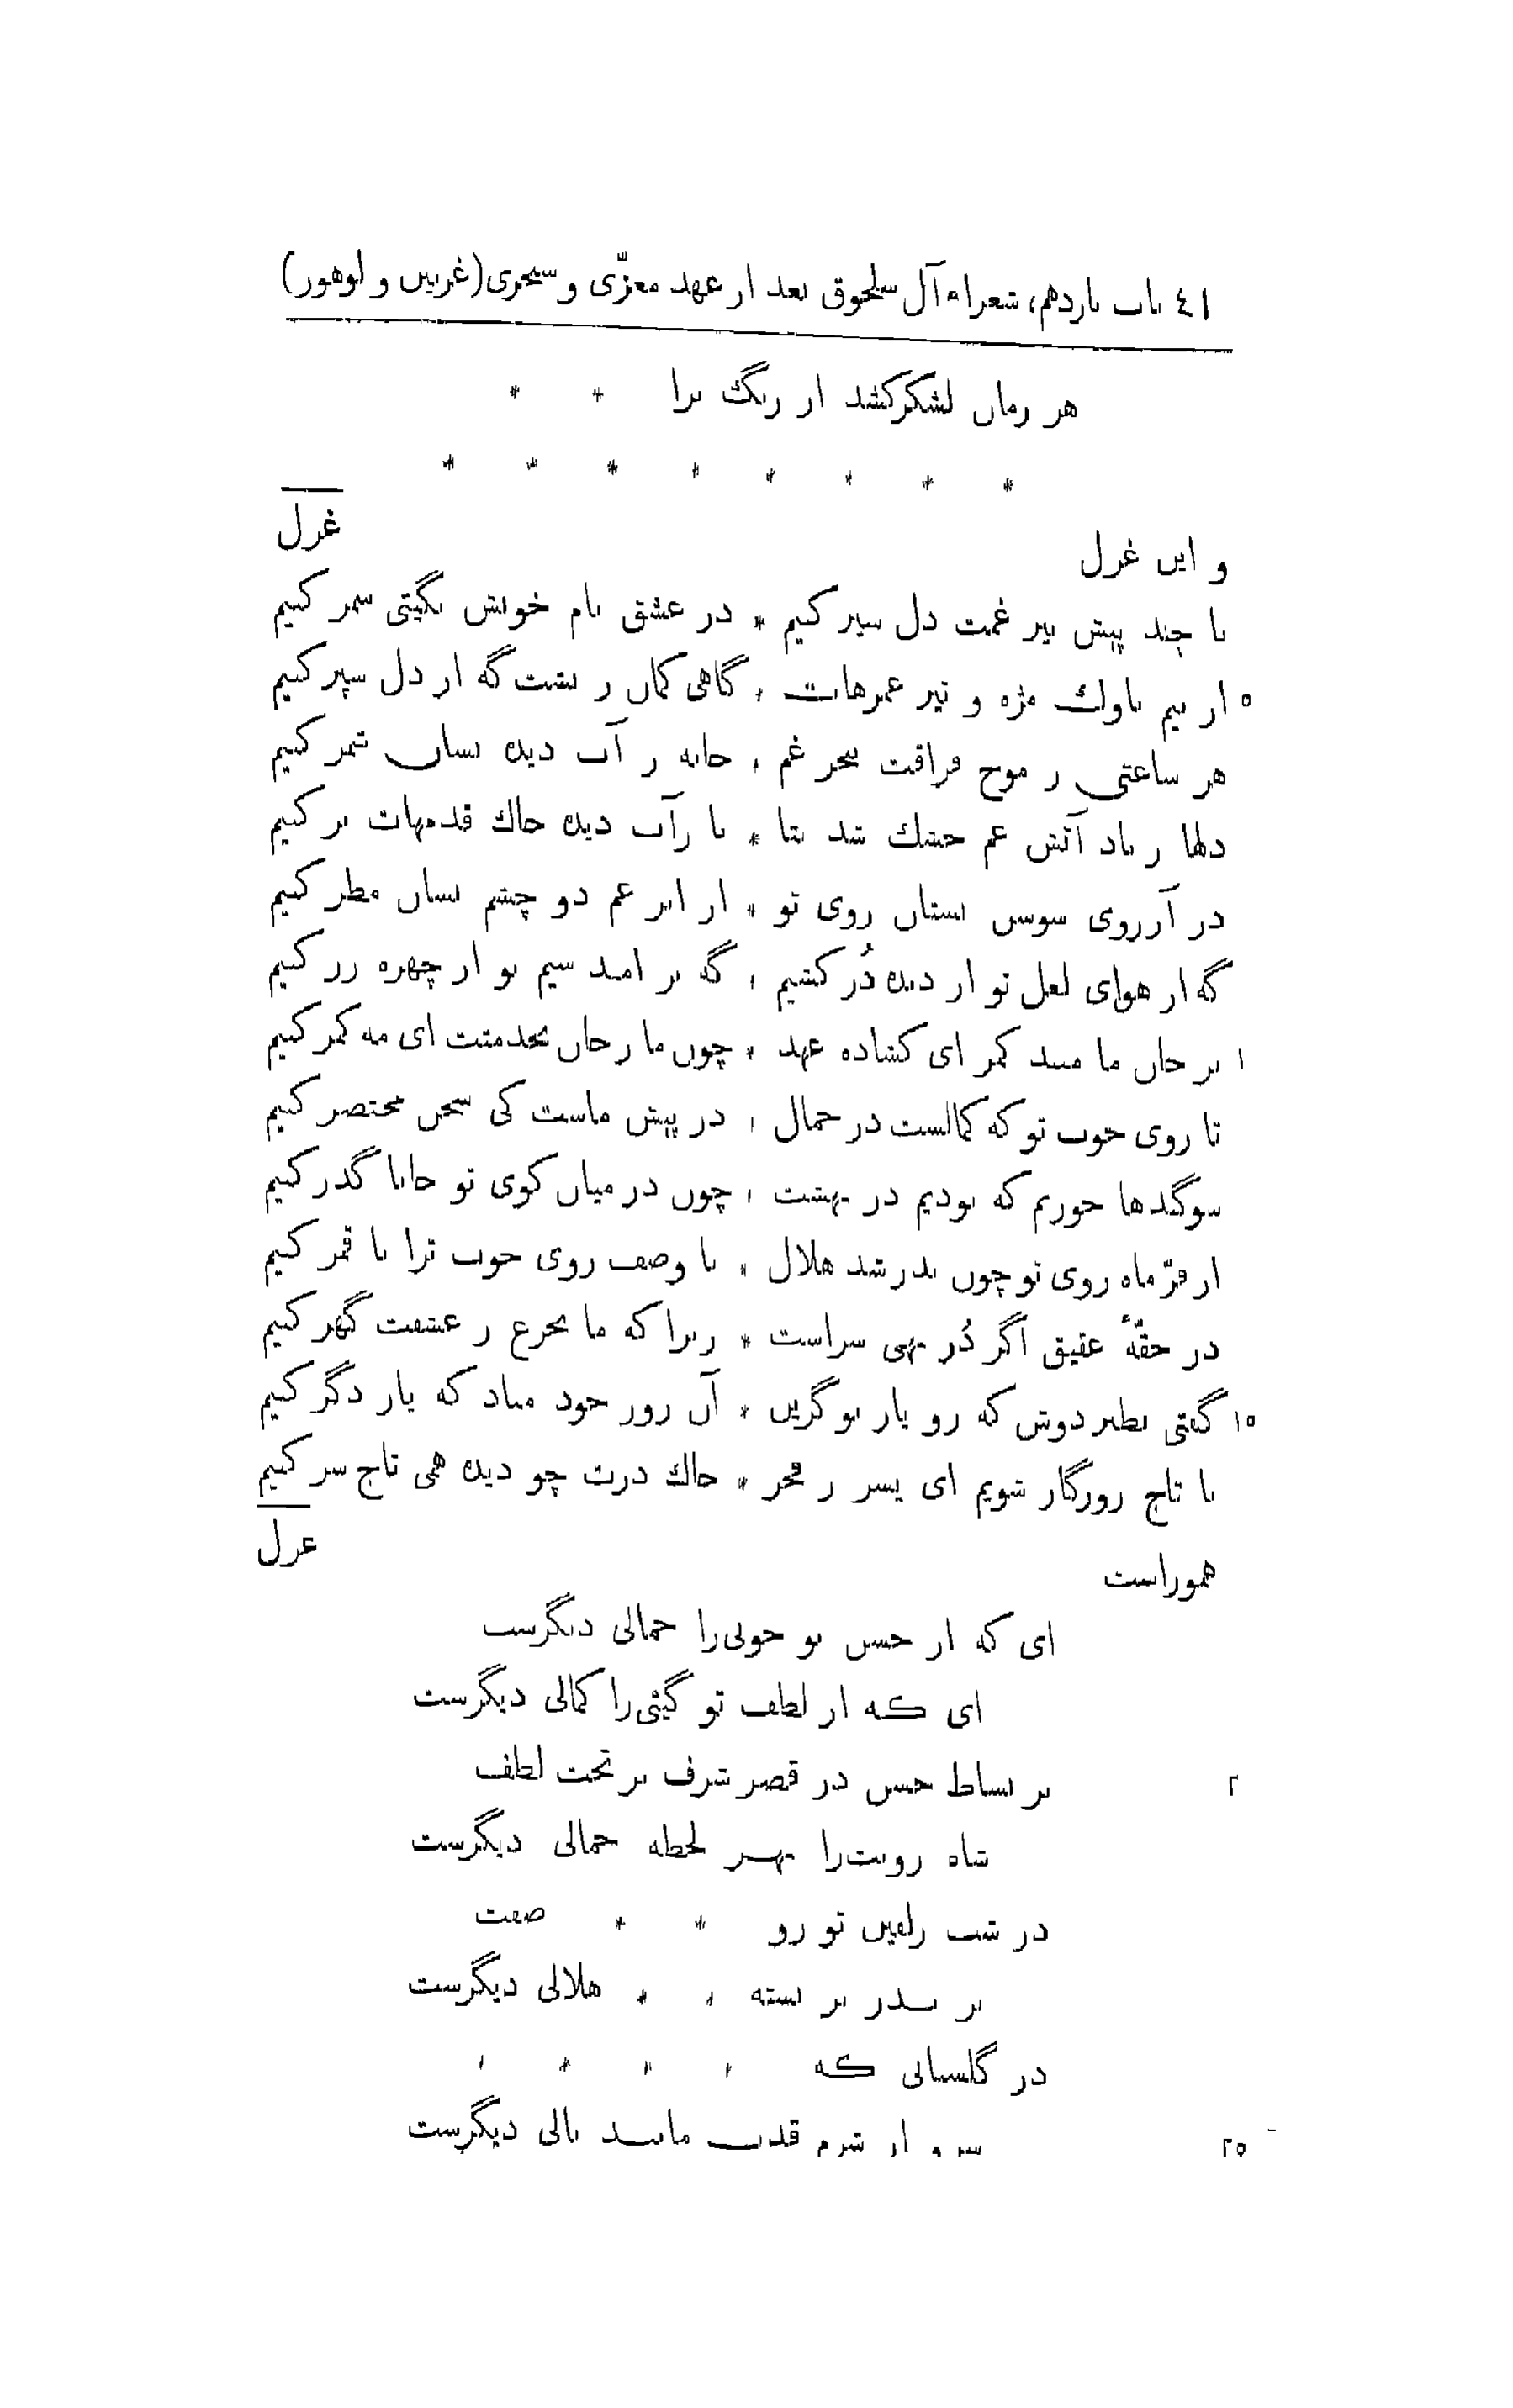 ٤١ باب یازدهم، شعراء آل سلجوق بعد از عهد معزّی و سنجری (غزنین و لوهور)
هر زمان لشکرکشد از رنگ برا * *
* * * * * * * *
و این غزل غزل
تا چند پیش تیر غمت دل سپر کنیم * در عشق نام خویش بگیتی سمر کنیم
٥ از بیم ناوك مژه و تیر غمزهات * گاهی کمان ز پشت گه از دل سپر کنیم
هر ساعتی ز موج فراقت ببحر غم * خانه ز آب دیده بسان شمر کنیم
دلها ز باد آتش غم خشك شد بتا * تا زآب دیده خاك قدمهات تر کنیم
در آرزوی سوسن بستان روی تو * از ابر غم دو چشم بسان مطر کنیم
گه از هوای لعل تو از دیده دُر کشیم * گه بر امید سیم تو از چهره زر کنیم
١ بر جان ما مبند کمر ای گشاده عهد * چون ما ز جان بخدمتت ای مه کمر کنیم
تا روی خوب تو که کمالست در جمال * در پیش ماست کی سخن مختصر کنیم
سوگندها خوریم که بودیم در بهشت * چون در میان کوی تو جانا گذر کنیم
از فرّ ماه روی تو چون بدر شد هلال * تا وصف روی خوب ترا با قمر کنیم
در حقّهٔ عقیق اگر دُر نهی سزاست * زیرا که ما بجزع ز عشقت گهر کنیم
١٥ گفتی بطنز دوش که رو یار نو گزین * آن روز خود مباد که یار دگر کنیم
تا تاج روزگار شویم ای پسر ز فخر * خاك درت چو دیده همی تاج سر کنیم
هموراست غزل
ای که از حسن تو خوبی‌را جمالی دیگرست
ای که از لطف تو گیتی‌را کمالی دیگرست
٢ بر بساط حسن در قصر شرف بر تخت لطف
شاه رویت‌را بهر لحظه جمالی دیگرست
در شب زلفین تو رو * * صفت
بر بدر بر بسته * * هلالی دیگرست
در گلستانی که * * * *
٢٥ سرو از شرم قدت مانند نالی دیگرست